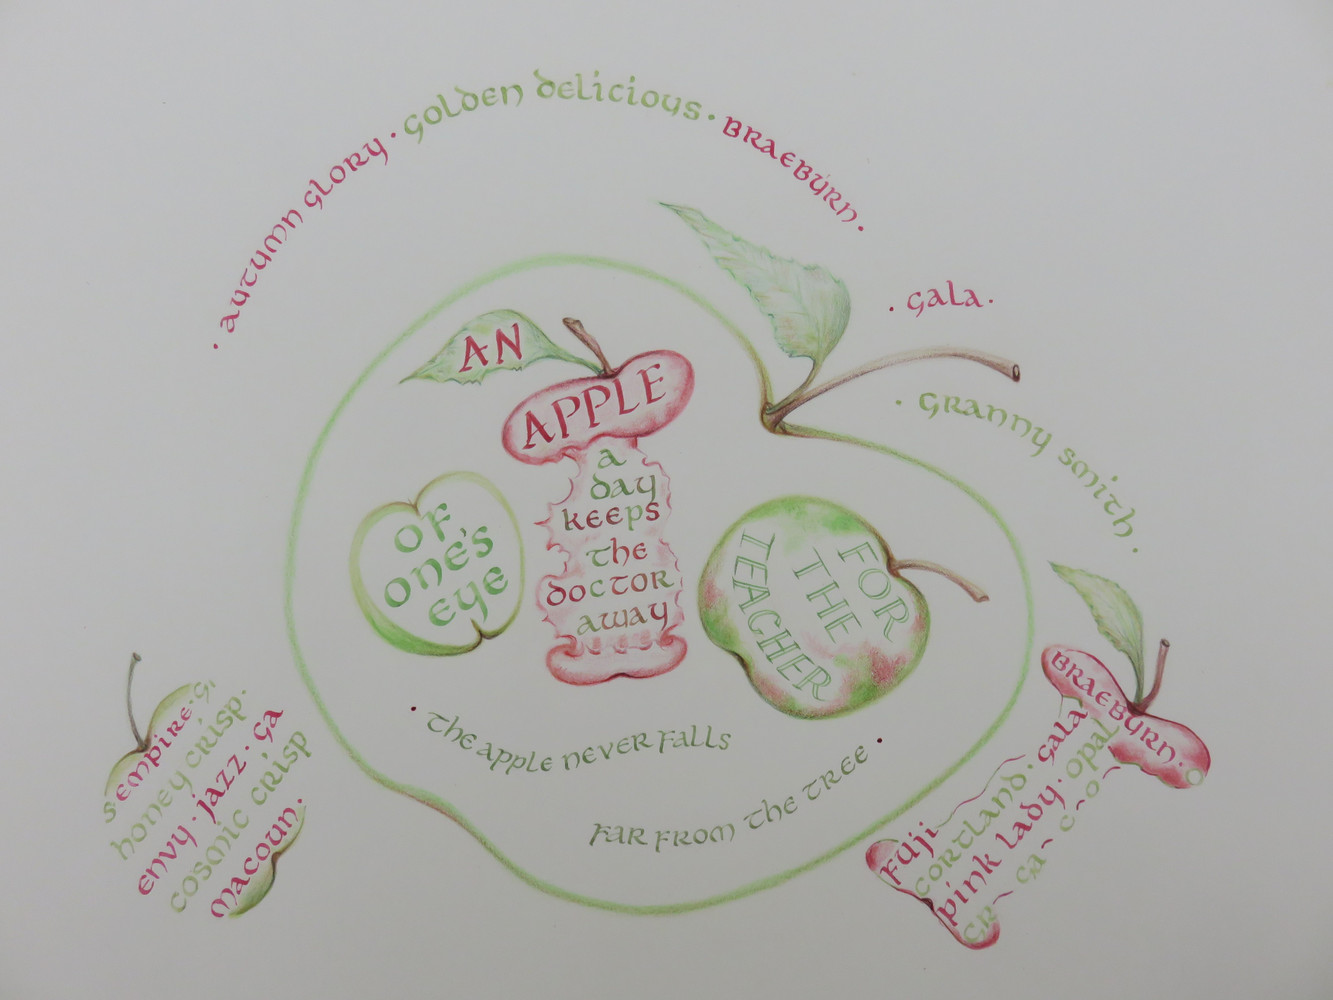 · autumn glory · golden delicious · braeburn ·
· gala ·
· granny smith ·
AN
APPLE
a
day
keeps
the
doctor
away
OF
ONE'S
eye
FOR
THE
TEACHER
· the apple never falls
far from the tree ·
s · empire · g
honey crisp ·
envy · jazz · ga
cosmic crisp
macoun ·
braeburn · o
fuji · gala
cortland · opal
pink lady · c o
gr ga